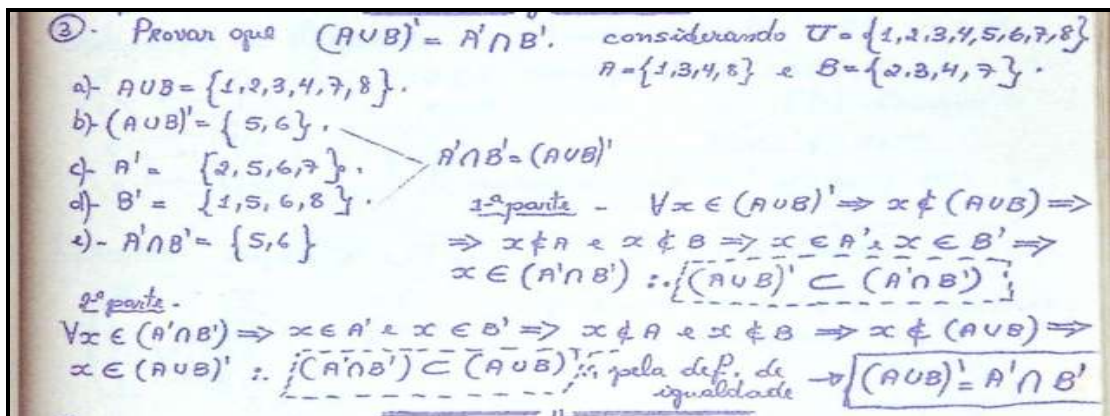 ③. Provar que (A∪B)' = A'∩B'. considerando U = {1,2,3,4,5,6,7,8}
A={1,3,4,8} e B={2,3,4,7}.
a)- A∪B = {1,2,3,4,7,8}.
b)- (A∪B)' = {5,6}.
A'∩B' = (A∪B)'
c)- A' = {2,5,6,7}.
d)- B' = {1,5,6,8}.
e)- A'∩B' = {5,6}
1ª parte - ∀x ∈ (A∪B)' ⇒ x ∉ (A∪B) ⇒
⇒ x ∉ A e x ∉ B ⇒ x ∈ A' e x ∈ B' ⇒
x ∈ (A'∩B') ∴ (A∪B)' ⊂ (A'∩B')
2ª parte.
∀x ∈ (A'∩B') ⇒ x ∈ A' e x ∈ B' ⇒ x ∉ A e x ∉ B ⇒ x ∉ (A∪B) ⇒
x ∈ (A∪B)' ∴ (A'∩B') ⊂ (A∪B)' ∴ pela def. de igualdade → (A∪B)' = A'∩B'